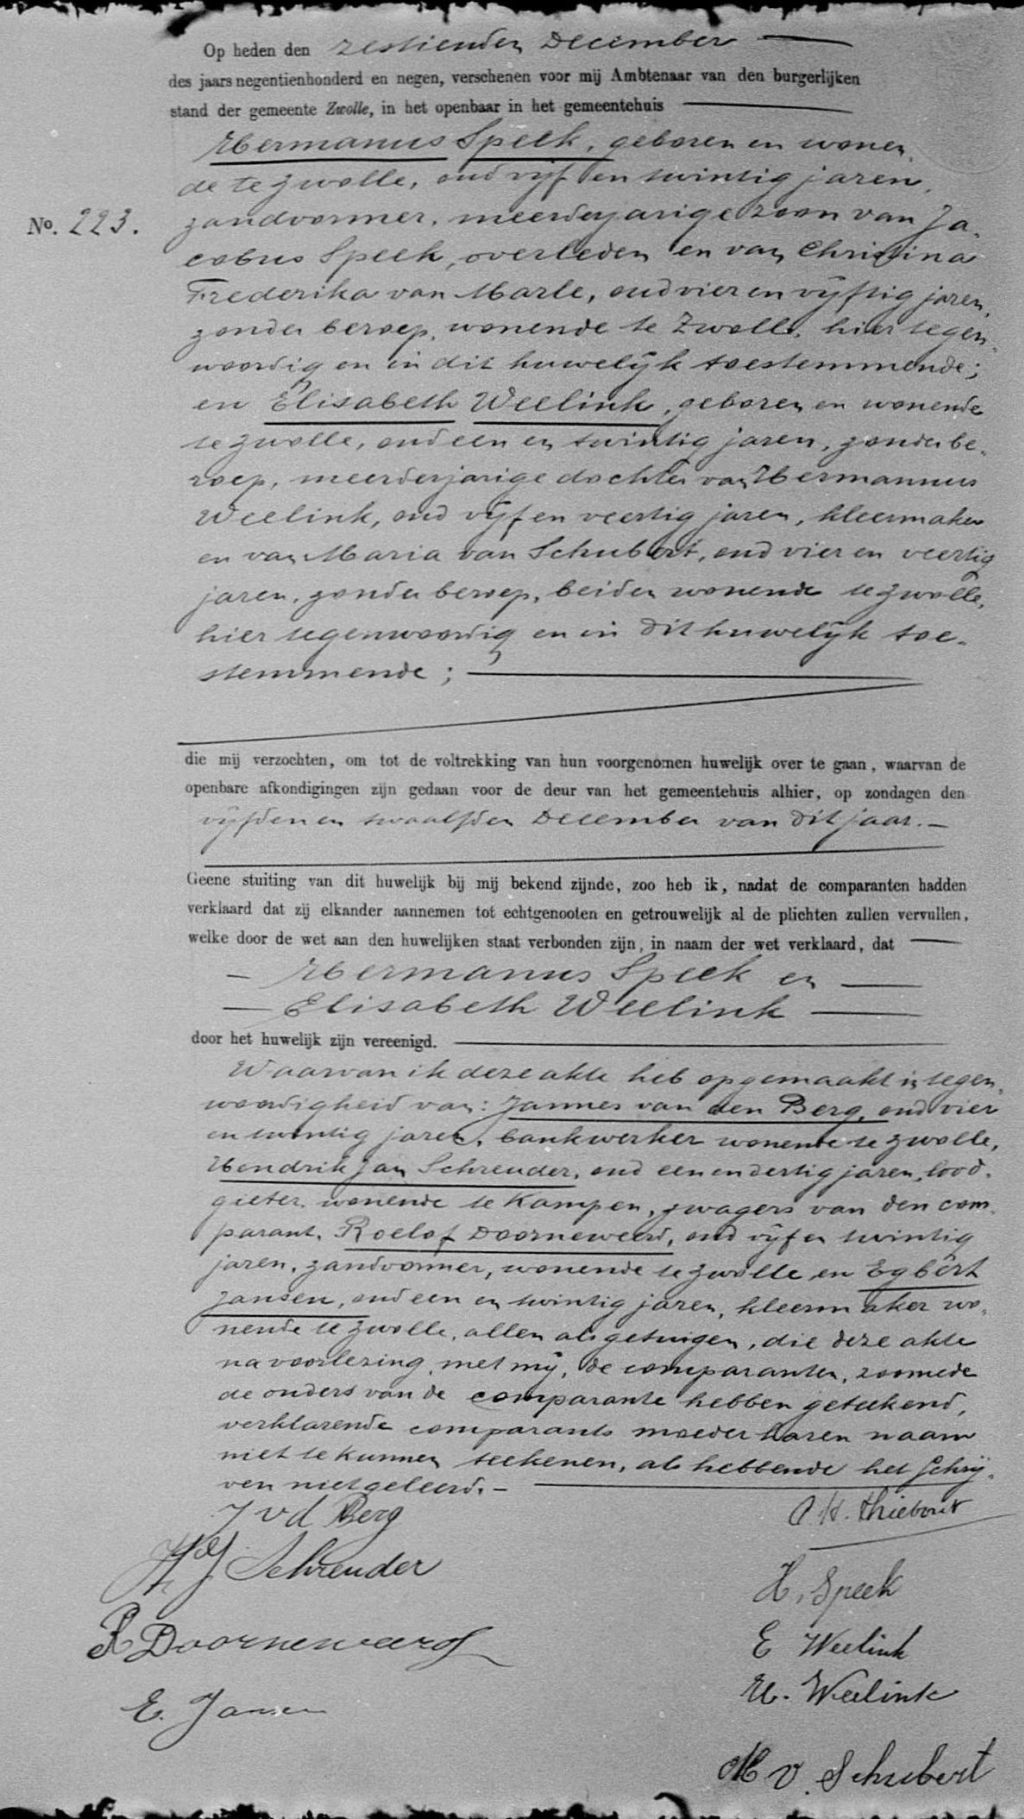 Op heden den zestienden December
des jaars negentienhonderd en negen, verschenen voor mij Ambtenaar van den burgerlijken
stand der gemeente Zwolle, in het openbaar in het gemeentehuis
Hermanus Speek, geboren en wonen
de te Zwolle, oud vijf en twintig jaren,
No. 223.
zandvormer, meerderjarige zoon van Ja-
cobus Speek, overleden en van Christina
Frederika van Marle, oud vier en vijftig jaren,
zonder beroep, wonende te Zwolle, hier tegen-
woordig en in dit huwelijk toestemmende;
en Elisabeth Weelink, geboren en wonende
te Zwolle, oud een en twintig jaren, zonder be-
roep, meerderjarige dochter van Hermannus
Weelink, oud vijf en veertig jaren, kleermaker
en van Maria van Schubert, oud vier en veertig
jaren, zonder beroep, beiden wonende te Zwolle,
hier tegenwoordig en in dit huwelijk toe-
stemmende;
die mij verzochten, om tot de voltrekking van hun voorgenomen huwelijk over te gaan, waarvan de
openbare afkondigingen zijn gedaan voor de deur van het gemeentehuis alhier, op zondagen den
vijfden en twaalfden December van dit jaar.-
Geene stuiting van dit huwelijk bij mij bekend zijnde, zoo heb ik, nadat de comparanten hadden
verklaard dat zij elkander aannemen tot echtgenooten en getrouwelijk al de plichten zullen vervullen,
welke door de wet aan den huwelijken staat verbonden zijn, in naam der wet verklaard, dat
- Hermanus Speek en
- Elisabeth Weelink
door het huwelijk zijn vereenigd.
Waarvan ik deze akte heb opgemaakt in tegen-
woordigheid van: Jannes van den Berg, oud vier
en twintig jaren, bankwerker wonende te Zwolle,
Hendrik Jan Schreuder, oud een en dertig jaren, lood-
gieter, wonende te Kampen, zwagers van den com-
parant, Roelof Doorneweerd, oud vijf en twintig
jaren, zandvormer, wonende te Zwolle en Egbert
Jansen, oud een en twintig jaren, kleermaker wo-
nende te Zwolle, allen als getuigen, die deze akte
na voorlezing, met mij, de comparanten, zoomede
de ouders van de comparante hebben geteekend,
verklarende comparants moeder haren naam
niet te kunnen teekenen, als hebbende het schrij-
ven niet geleerd.-
J v d Berg
A. H. Thiebout
H J Schreuder
H. Speek
R Doorneweerd
E Weelink
H. Weelink
E. Jansen
M v. Schubert